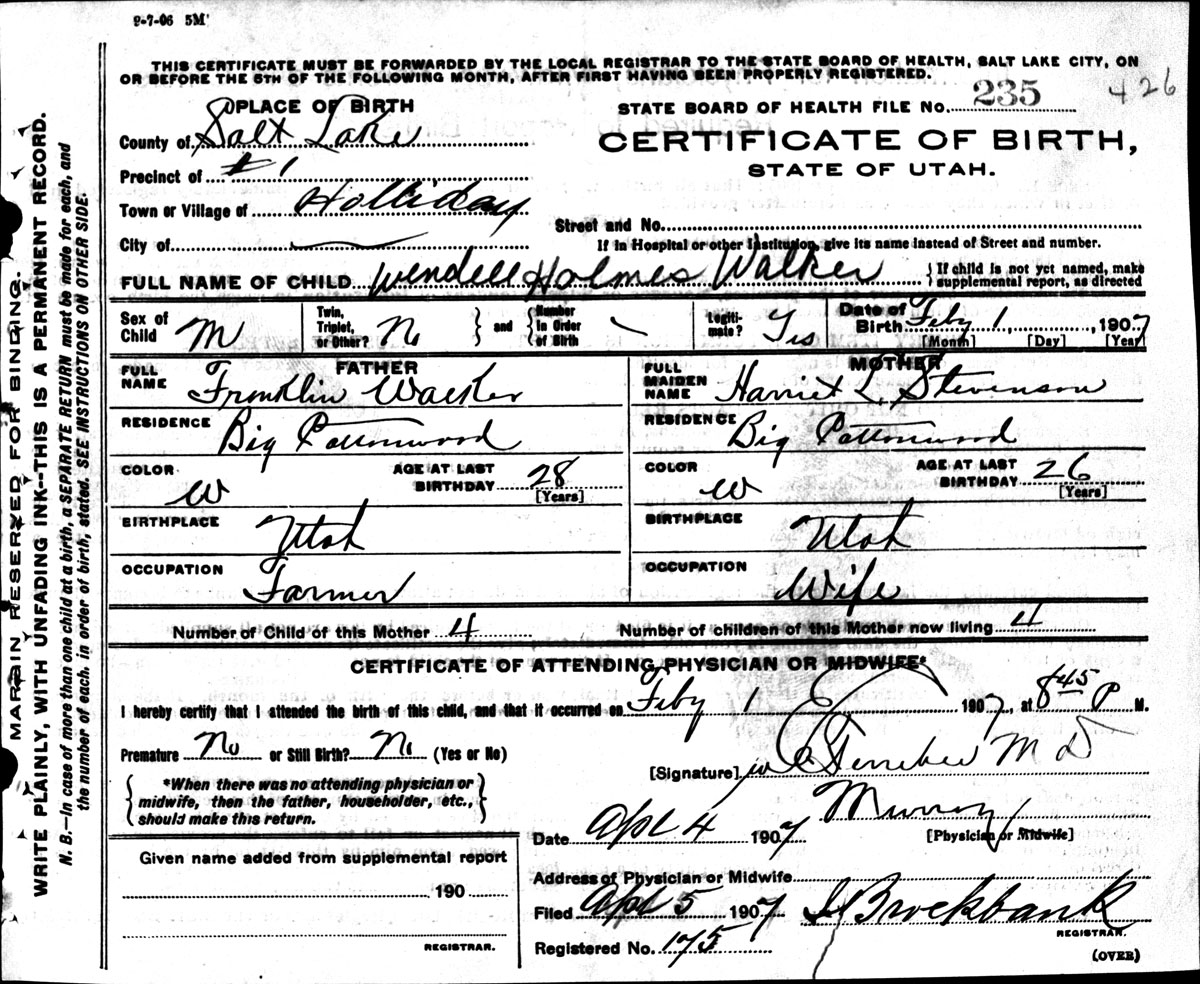 9-7-06 5M
THIS CERTIFICATE MUST BE FORWARDED BY THE LOCAL REGISTRAR TO THE STATE BOARD OF HEALTH, SALT LAKE CITY, ON
OR BEFORE THE 5TH OF THE FOLLOWING MONTH, AFTER FIRST HAVING BEEN PROPERLY REGISTERED.
PLACE OF BIRTH
STATE BOARD OF HEALTH FILE NO. 235
426
County of Salt Lake
CERTIFICATE OF BIRTH,
STATE OF UTAH.
Precinct of #1
Town or Village of Holliday
Street and No.
City of
If in Hospital or other Institution, give its name instead of Street and number.
FULL NAME OF CHILD Wendell Holmes Walker
{ If child is not yet named, make supplemental report, as directed
Sex of Child M
Twin, Triplet, or Other? No } and { Number in Order of Birth
Legitimate? Yes
Date of Birth Feby 1, 1907
[Month] [Day] [Year]
FATHER
FULL NAME Franklin Walker
RESIDENCE Big Cottonwood
COLOR W
AGE AT LAST BIRTHDAY 28
[Years]
BIRTHPLACE Utah
OCCUPATION Farmer
MOTHER
FULL MAIDEN NAME Harriet L. Stevenson
RESIDENCE Big Cottonwood
COLOR W
AGE AT LAST BIRTHDAY 26
[Years]
BIRTHPLACE Utah
OCCUPATION Wife
Number of Child of this Mother 4
Number of children of this Mother now living 4
CERTIFICATE OF ATTENDING PHYSICIAN OR MIDWIFE*
I hereby certify that I attended the birth of this child, and that it occurred on Feby 1 1907, at 8 45 P M.
Premature No or Still Birth? No (Yes or No)
[Signature] M D
{ *When there was no attending physician or
midwife, then the father, householder, etc.,
should make this return. }
Murray
Date Apl 4 1907
[Physician or Midwife]
Given name added from supplemental report
190
REGISTRAR.
Address of Physician or Midwife
Filed Apl 5 1907
Brockbank
REGISTRAR.
Registered No. 175
(OVER)
MARGIN RESERVED FOR BINDING.
WRITE PLAINLY, WITH UNFADING INK--THIS IS A PERMANENT RECORD.
N. B.—In case of more than one child at a birth, a SEPARATE RETURN must be made for each, and
the number of each, in order of birth, stated. SEE INSTRUCTIONS ON OTHER SIDE.